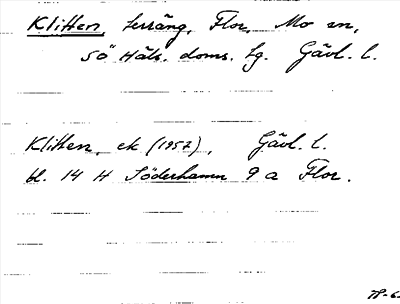 Klitten, terräng, Flor, Mo sn,
Sö Häls. doms. lg. Gävl. l.
Klitten, ek (1957), Gävl. l.
bl. 14 H Söderhamn 9 a Flor.